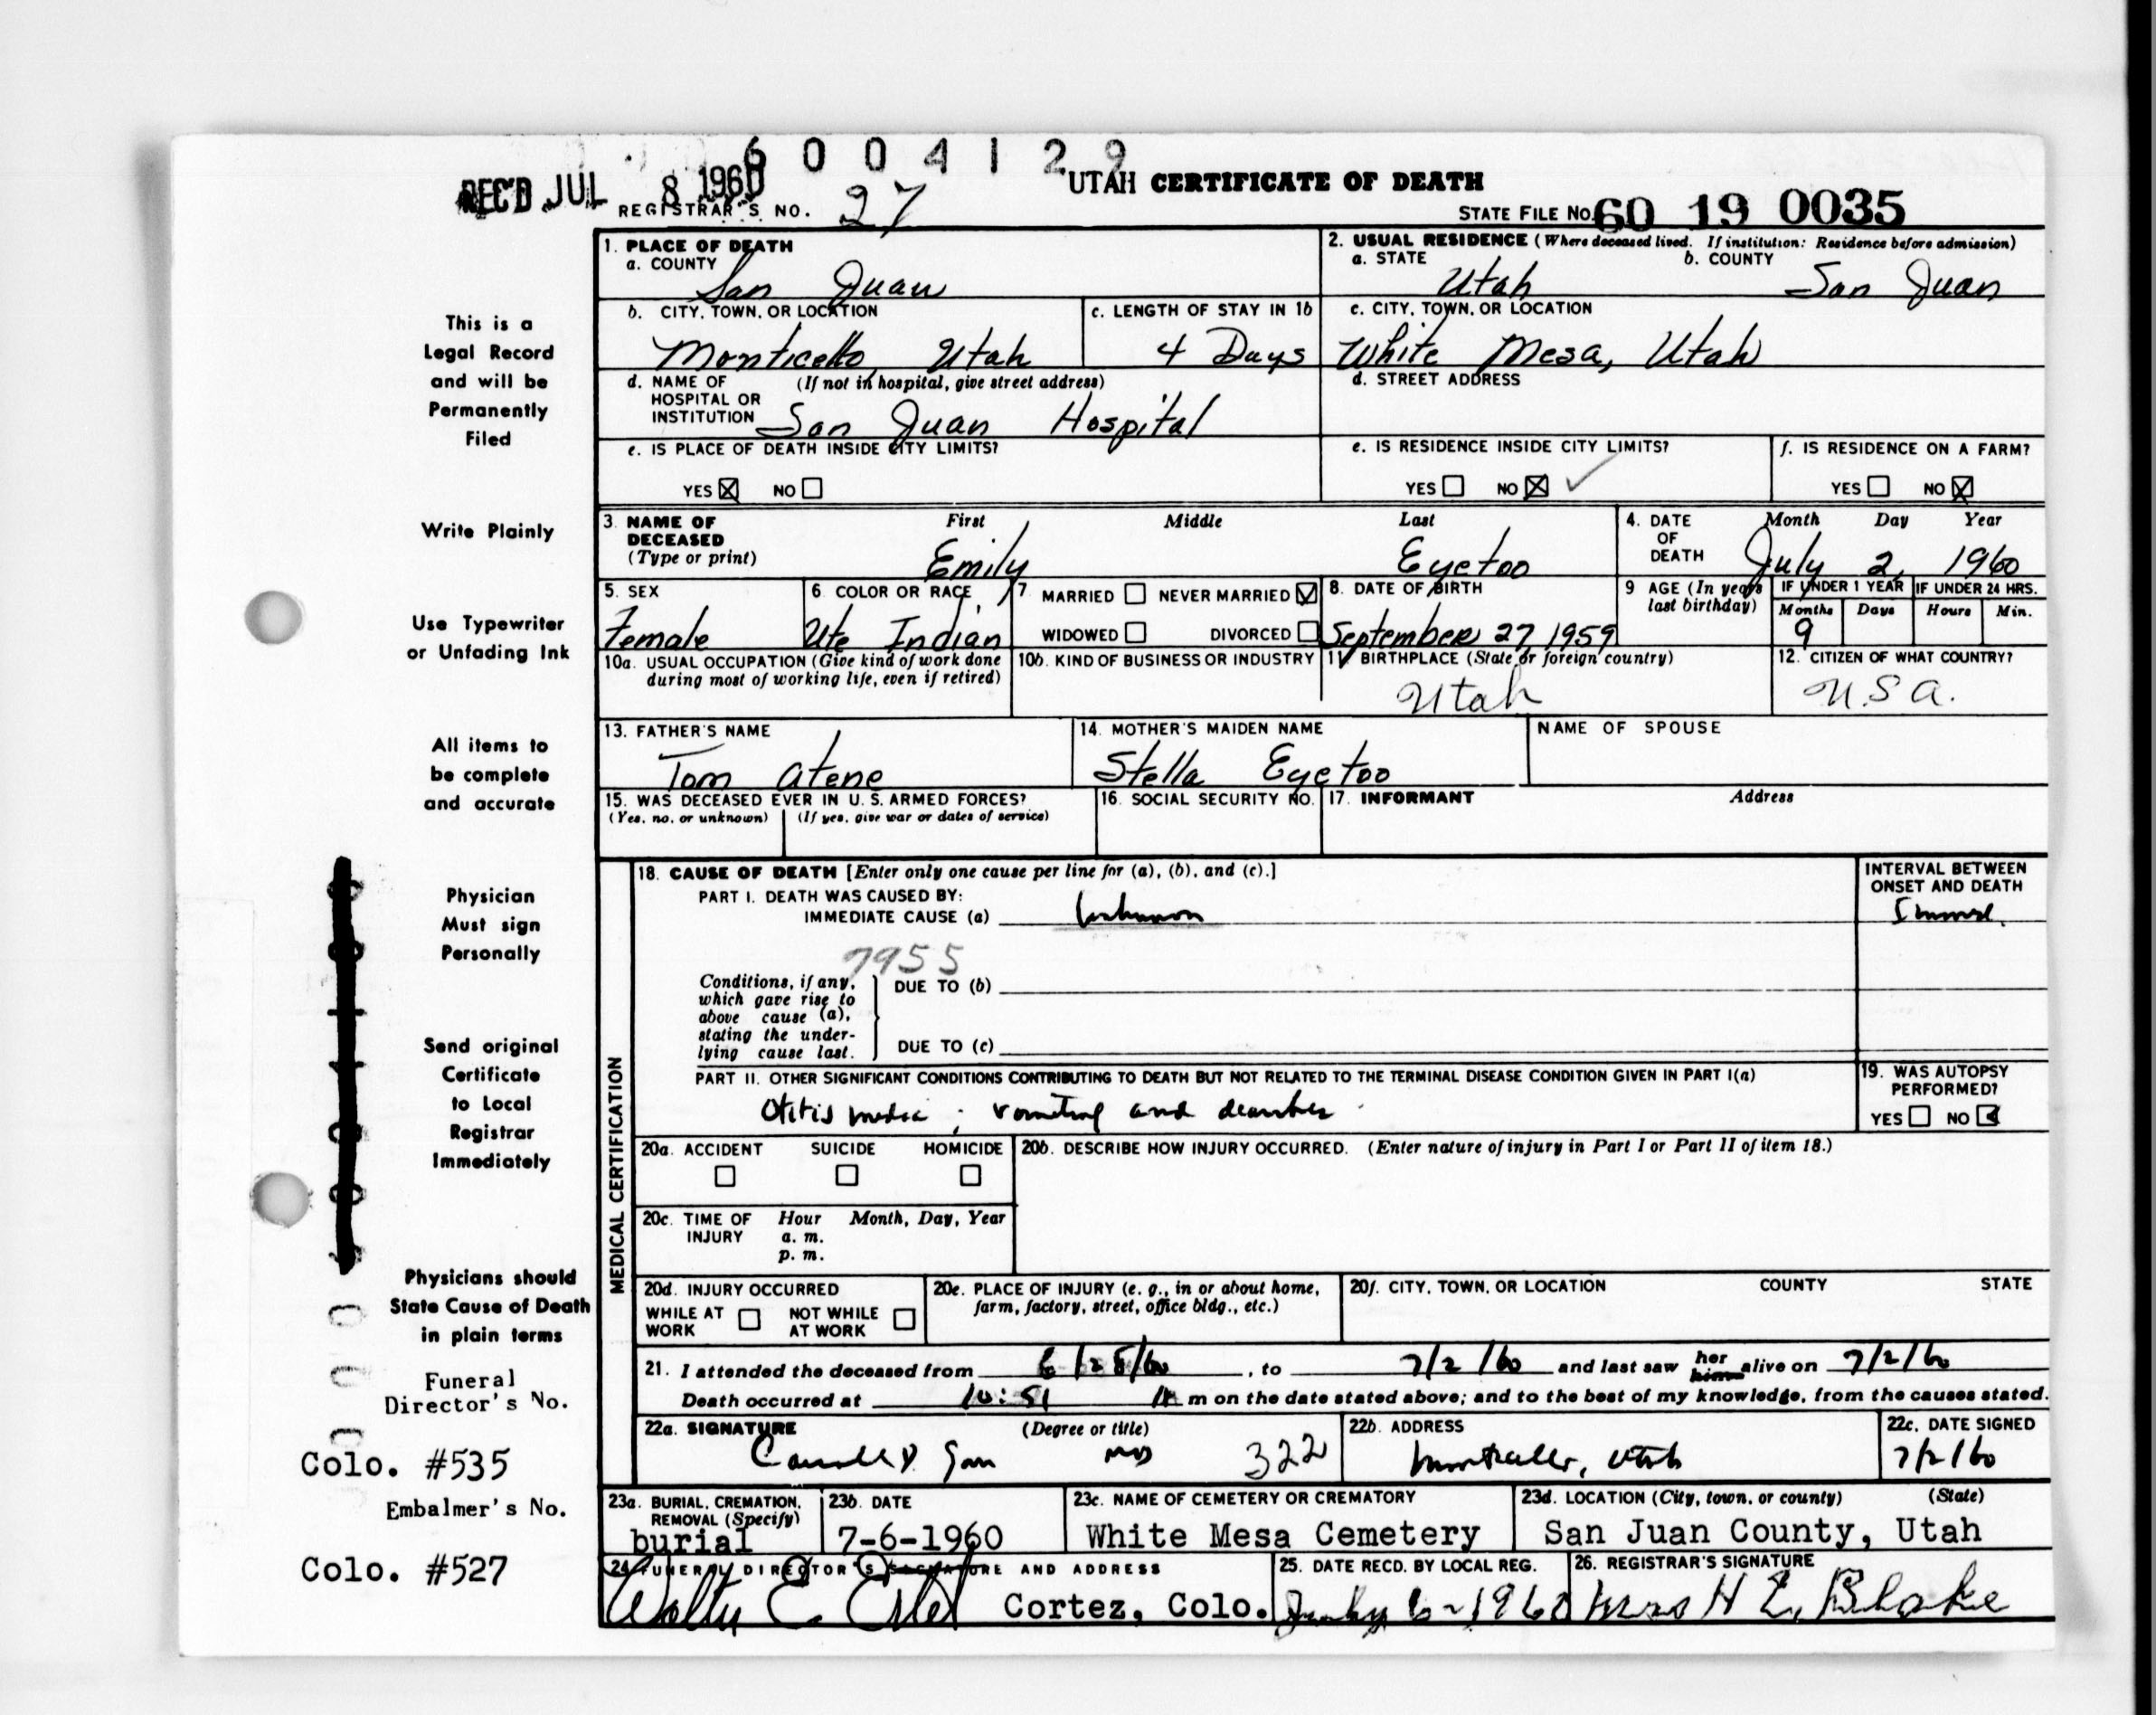 6004129
REC'D JUL 8 1960
UTAH CERTIFICATE OF DEATH
REGISTRAR'S NO. 27
STATE FILE No. 60 19 0035
1. PLACE OF DEATH
a. COUNTY
San Juan
2. USUAL RESIDENCE (Where deceased lived. If institution: Residence before admission)
a. STATE b. COUNTY
Utah San Juan
b. CITY, TOWN, OR LOCATION
Monticello, Utah
c. LENGTH OF STAY IN 1b
4 Days
c. CITY, TOWN, OR LOCATION
White Mesa, Utah
d. NAME OF HOSPITAL OR INSTITUTION (If not in hospital, give street address)
San Juan Hospital
d. STREET ADDRESS
e. IS PLACE OF DEATH INSIDE CITY LIMITS?
YES ☒ NO ☐
e. IS RESIDENCE INSIDE CITY LIMITS?
YES ☐ NO ☒ ✓
f. IS RESIDENCE ON A FARM?
YES ☐ NO ☒
3. NAME OF DECEASED (Type or print)
First Middle Last
Emily Eyetoo
4. DATE OF DEATH
Month Day Year
July 2, 1960
5. SEX
Female
6. COLOR OR RACE
Ute Indian
7. MARRIED ☐ NEVER MARRIED ☒
WIDOWED ☐ DIVORCED ☐
8. DATE OF BIRTH
September 27, 1959
9 AGE (In years last birthday)
IF UNDER 1 YEAR IF UNDER 24 HRS.
Months Days Hours Min.
9
10a. USUAL OCCUPATION (Give kind of work done during most of working life, even if retired)
10b. KIND OF BUSINESS OR INDUSTRY
11. BIRTHPLACE (State or foreign country)
Utah
12. CITIZEN OF WHAT COUNTRY?
U.S.A.
13. FATHER'S NAME
Tom Atene
14. MOTHER'S MAIDEN NAME
Stella Eyetoo
NAME OF SPOUSE
15. WAS DECEASED EVER IN U.S. ARMED FORCES?
(Yes, no, or unknown) (If yes, give war or dates of service)
16. SOCIAL SECURITY NO.
17. INFORMANT Address
MEDICAL CERTIFICATION
18. CAUSE OF DEATH [Enter only one cause per line for (a), (b), and (c).]
PART I. DEATH WAS CAUSED BY:
IMMEDIATE CAUSE (a) Unknown
INTERVAL BETWEEN ONSET AND DEATH
7955
Conditions, if any, which gave rise to above cause (a), stating the underlying cause last.
DUE TO (b)
DUE TO (c)
PART II. OTHER SIGNIFICANT CONDITIONS CONTRIBUTING TO DEATH BUT NOT RELATED TO THE TERMINAL DISEASE CONDITION GIVEN IN PART I(a)
Otitis media; vomiting and diarrhea
19. WAS AUTOPSY PERFORMED?
YES ☐ NO ☒
20a. ACCIDENT SUICIDE HOMICIDE
☐ ☐ ☐
20b. DESCRIBE HOW INJURY OCCURRED. (Enter nature of injury in Part I or Part II of item 18.)
20c. TIME OF INJURY Hour Month, Day, Year
a. m.
p. m.
20d. INJURY OCCURRED
WHILE AT WORK ☐ NOT WHILE AT WORK ☐
20e. PLACE OF INJURY (e. g., in or about home, farm, factory, street, office bldg., etc.)
20f. CITY, TOWN, OR LOCATION COUNTY STATE
21. I attended the deceased from 6/28/60, to 7/2/60 and last saw her him alive on 7/2/60
Death occurred at 10:51 m on the date stated above; and to the best of my knowledge, from the causes stated.
22a. SIGNATURE (Degree or title)
MD 322
22b. ADDRESS
Monticello, Utah
22c. DATE SIGNED
7/2/60
23a. BURIAL, CREMATION, REMOVAL (Specify)
burial
23b. DATE
7-6-1960
23c. NAME OF CEMETERY OR CREMATORY
White Mesa Cemetery
23d. LOCATION (City, town, or county) (State)
San Juan County, Utah
24. FUNERAL DIRECTOR'S SIGNATURE AND ADDRESS
Cortez, Colo.
25. DATE RECD. BY LOCAL REG.
July 6-1960
26. REGISTRAR'S SIGNATURE
Mrs H E. Blake
This is a
Legal Record
and will be
Permanently
Filed
Write Plainly
Use Typewriter
or Unfading Ink
All items to
be complete
and accurate
Physician
Must sign
Personally
Send original
Certificate
to Local
Registrar
Immediately
Physicians should
State Cause of Death
in plain terms
Funeral
Director's No.
Colo. #535
Embalmer's No.
Colo. #527